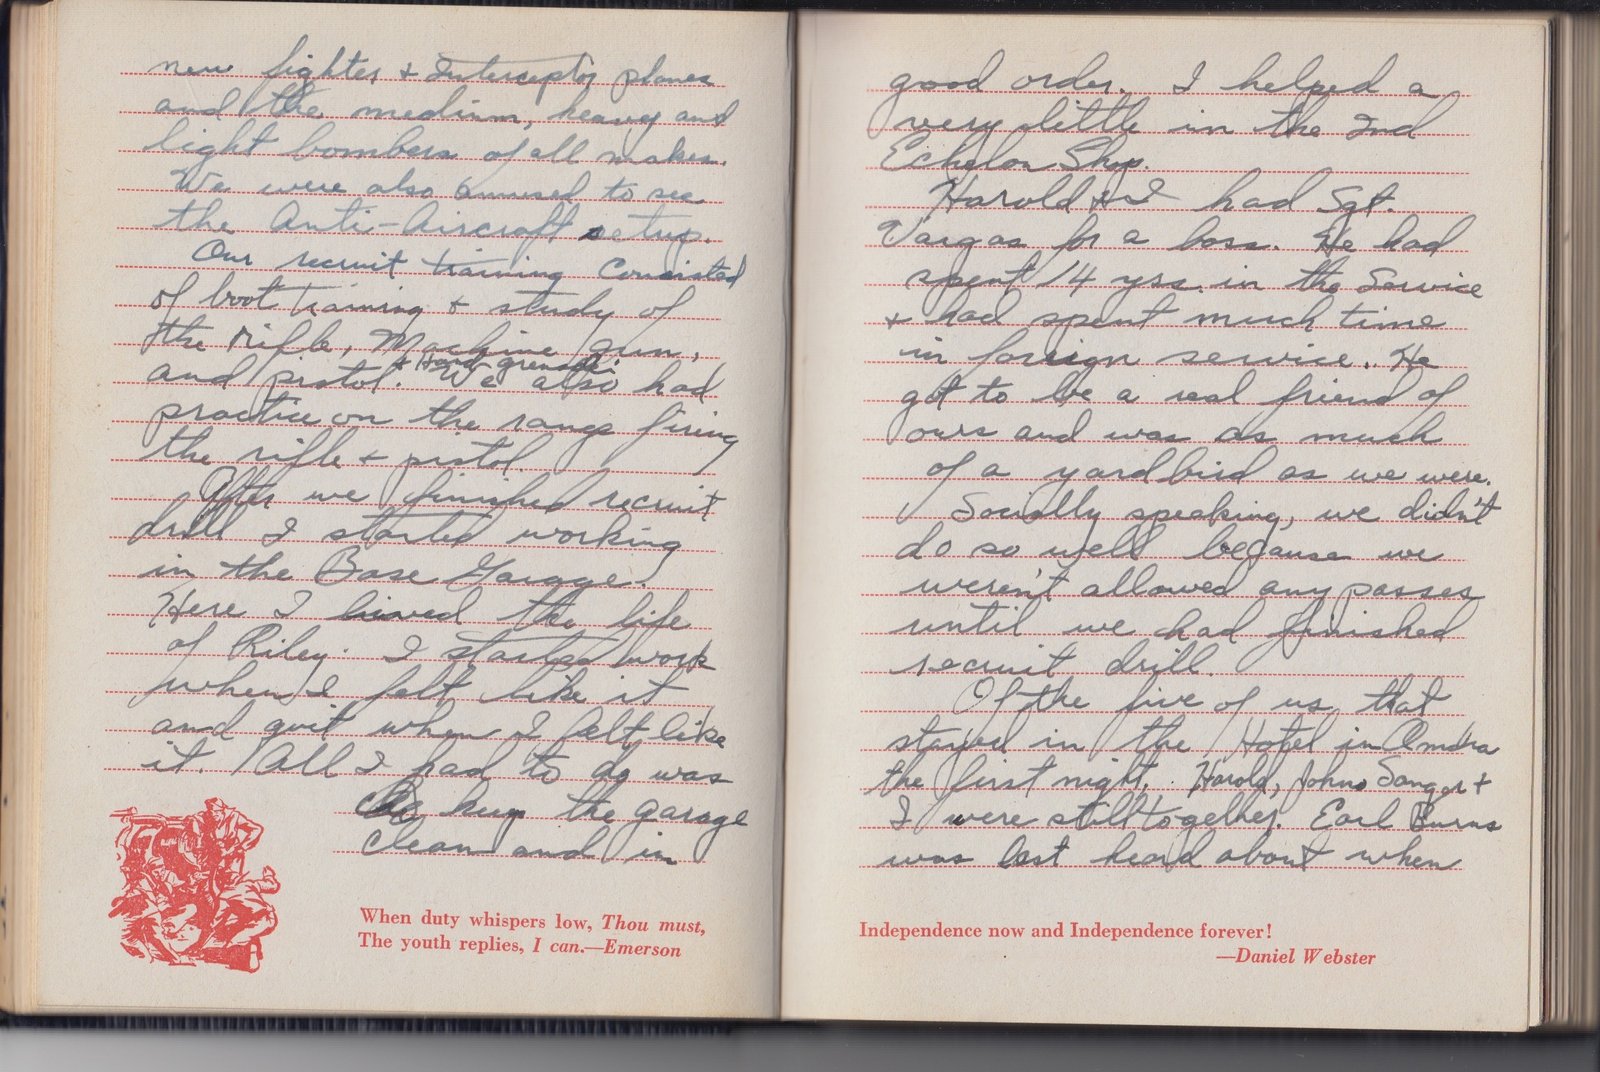 new fighter & Interceptor planes
and the medium, heavy and
light bombers of all makes.
We were also amused to see
the Anti-Aircraft setup.
Our recruit training consisted
of boot training & study of
the rifle, Machine gun,
& Hand grenade.
and pistol. We also had
practice on the range firing
the rifle & pistol.
After we finished recruit
drill I started working
in the Base Garage.
Here I lieved the life
of Riley. I started work
when I felt like it
and quit when I felt like
it. All I had to do was
keep the garage
clean and in
When duty whispers low, Thou must,
The youth replies, I can.—Emerson
good order. I helped a
very little in the 2nd
Echelon Shop.
Harold & I had Sgt.
Vargas for a boss. He had
spent 14 yrs. in the Service
& had spent much time
in foreign service. He
got to be a real friend of
ours and was as much
of a yardbird as we were.
Socially speaking, we didn't
do so well because we
weren't allowed any passes
until we had finished
recruit drill.
Of the five of us that
stayed in the Hotel in
the first night, Harold, Johns Sanger &
I were still together. Earl Burns
was last heard about when
Independence now and Independence forever!
—Daniel Webster